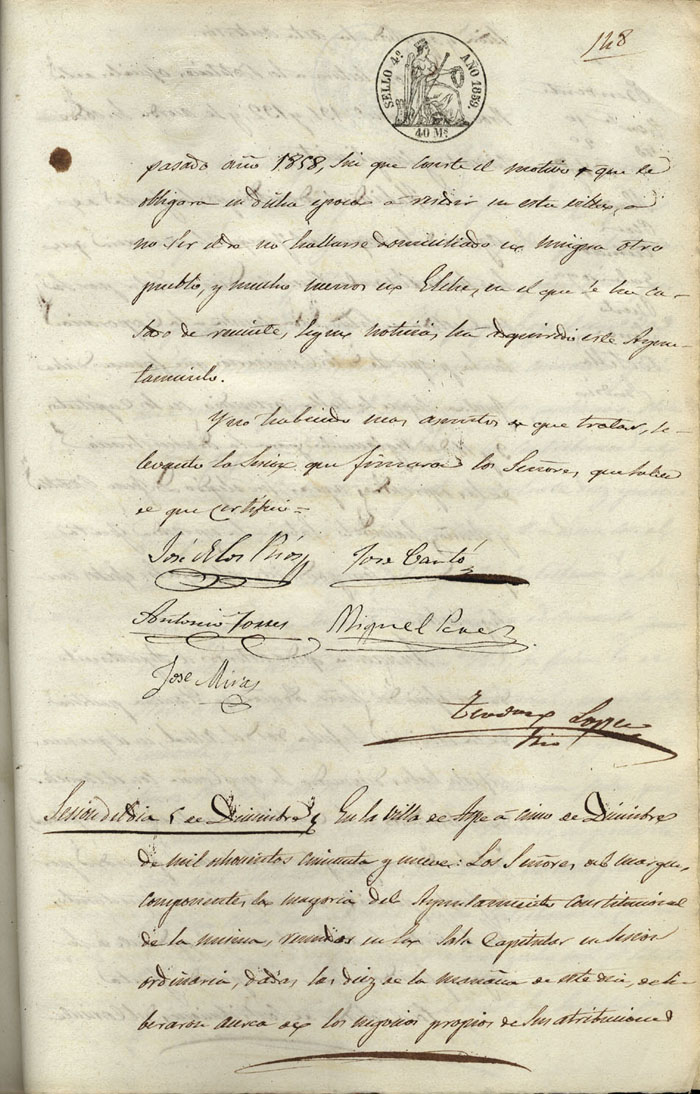 148
SELLO 4º AÑO 1859
40 Ms
pasado año 1858, sin que conste el motivo que le
obligara in dicha epoca a residir en esta villa, a
no ser otro no hallarse domiciliado en ninguna otro
pueblo, y mucho menos en Elche, en el que se ha ca-
sado de, segun noticias, ha adquirido este Ayun-
tamiento.
Y no habiendo mas asuntos de que tratar, se
levanto la Sesion que firmaran los Señores, que saben
de que certifico =
José de los Rios
Jose Cantó
Antonio Torres
Miguel Perez
Jose Miras
Teodoro Lopez
Srio
Sesion del dia 5 de Diciembre
En la villa de Aspe a cinco de Diciembre
de mil ochocientos cincuenta y nueve: Los Señores del margen,
componentes la mayoria del Ayuntamiento Constitucional
de la misma, reunidos en la Sala Capitular en sesion
ordinaria, dadas las diez de la mañana de este dia, deli-
beraron acerca de los negocios propios de sus atribuciones